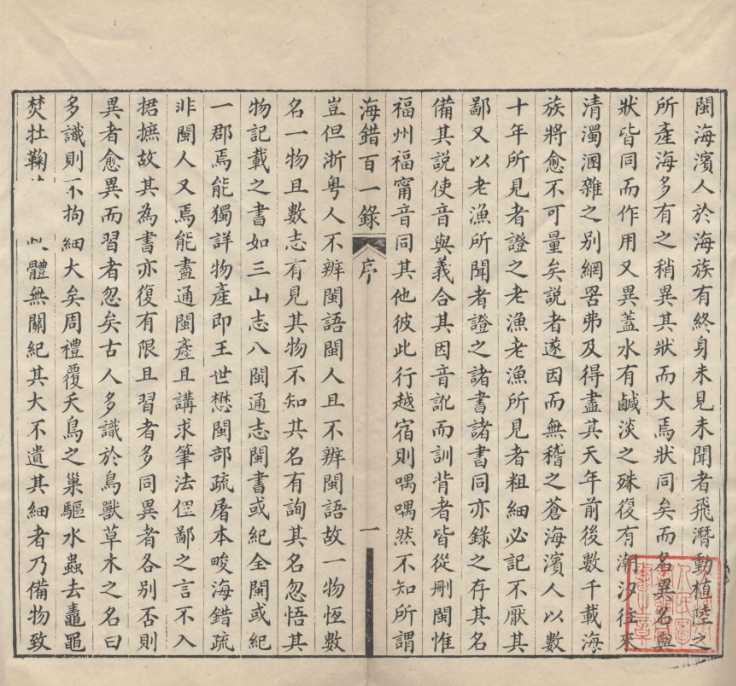 閩海濱人於海族有終身未見未聞者飛潛動植陸之
所產海多有之稍異其狀而大焉狀同矣而名異名與
狀皆同而作用又異蓋水有鹹淡之殊復有潮汐往來
清濁溷雜之別網罟弗及得盡其天年前後數千載海
族將愈不可量矣說者遂因而無稽之蒼海濱人以數
十年所見者證之老漁老漁所見者粗細必記不厭其
鄙又以老漁所聞者證之諸書諸書同亦錄之存其名
備其說使音與義合其因音訛而訓背者皆從刪閩惟
福州福甯音同其他彼此行越宿則喁喁然不知所謂
海錯百一錄 序 一
豈但浙粤人不辨閩語閩人且不辨閩語故一物恆數
名一物且數志有見其物不知其名有詢其名忽悟其
物記載之書如三山志八閩通志閩書或紀全閩或紀
一郡焉能獨詳物產即王世懋閩部疏屠本畯海錯疏
非閩人又焉能盡通閩產且講求筆法俚鄙之言不入
捃摭故其為書亦復有限且習者多同異者各別否則
異者愈異而習者忽矣古人多識於鳥獸草木之名曰
多識則不拘細大矣周禮覆夭鳥之巢驅水蟲去鼃黽
焚牡鞠 體無關紀其大不遺其細者乃備物致